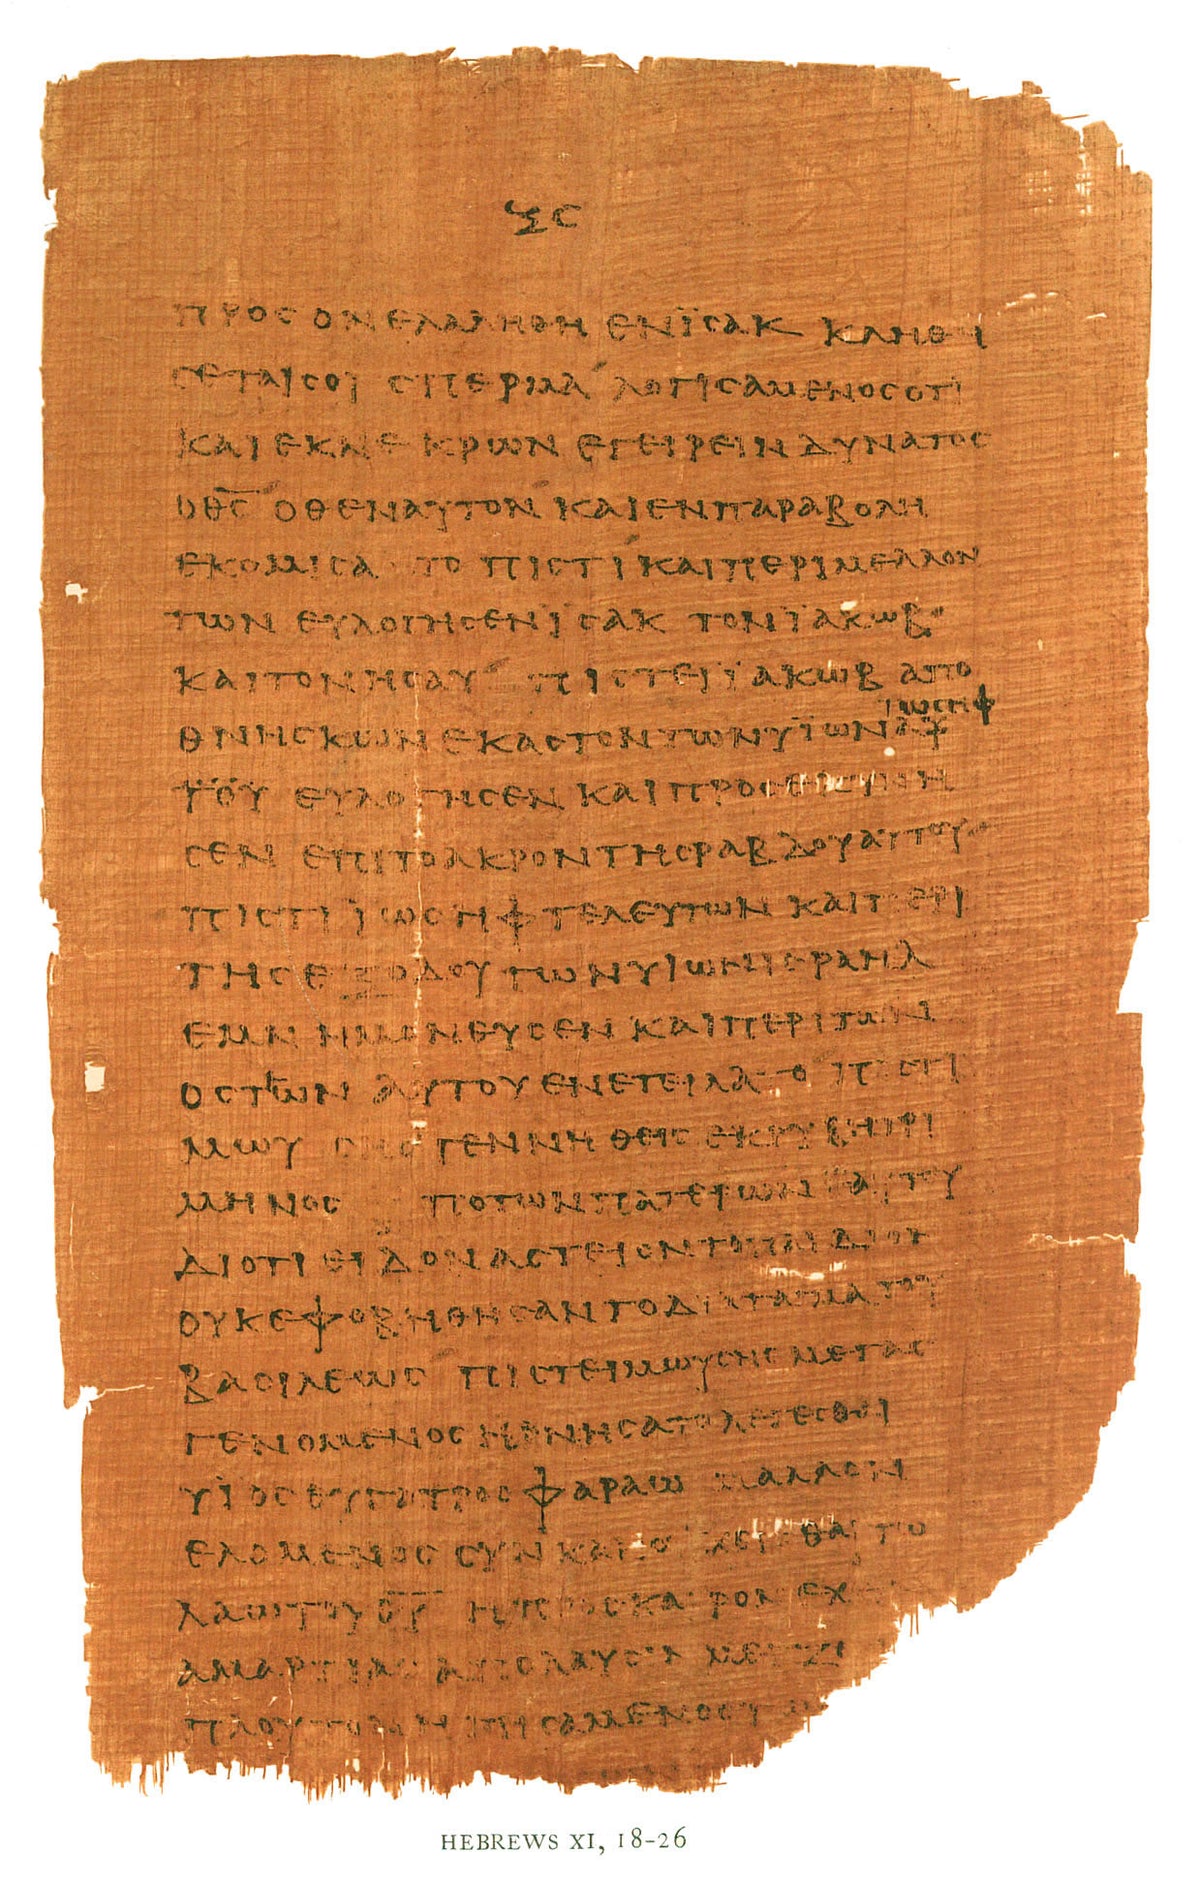 ξϛ
προσ ον ελαληθη εν ϊσακ κληθη
σεται σοι σπερμα λογισαμενοσ οτι
και εκ νεκρων εγειρειν δυνατοσ
ο θ̅σ̅ οθεν αυτον και εν παραβολη
εκομισατο πιστι και περι μελλον
των ευλογησεν ϊσακ τον ϊακωβ
και τον ησαυ πιστει ϊακωβ απο
ιωσηφ
θνησκων εκαστον των υϊων
ευλογησεν και προσεκυνη
σεν επι το ακρον τησ ραβδου αυτου
πιστι ϊωσηφ τελευτων και περι
τησ εξοδου των υιων ισραηλ
εμνημονευσεν και περι των
οστεων αυτου ενετειλατο πιστι
μωυσησ γεννηθεισ εκρυβη τρι
μηνοσ πο των πατερων αυτου
διοτι ειδον αστειον το παιδιον
ουκ εφοβηθησαν το διαταγμα του
βασιλεωσ πιστει μωυσησ μεγασ
γενομενοσ ηρνησατο λεγεσθαι
υϊοσ θυγατροσ φαραω μαλλον
ελομενοσ συνκακουχεισθαι τω
λαω του θ̅υ̅ η προσκαιρον εχ
αμαρτιασ απολαυσιν μειζ
πλουτον ηγησαμενοσ τ
HEBREWS XI, 18-26